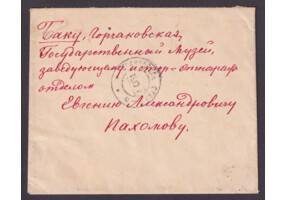 Баку, Горчаковская,
Государственный Музей,
заведующему истор-этнограф
отделом
Евгению Александровичу
Пахомову.